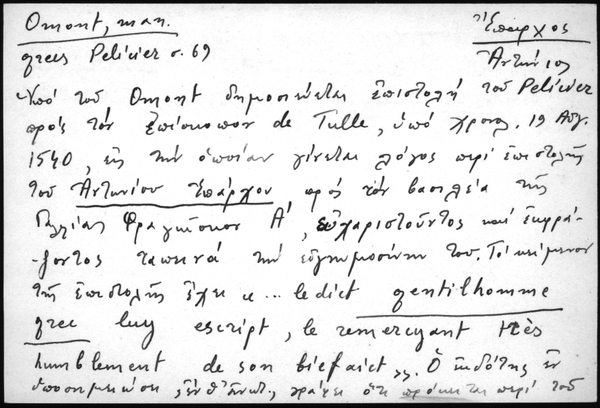 Omont, man.
Ἔπαρχος
grecs Pelicier σ. 69
Ἀντώνιος
Ὑπό τοῦ Omont δημοσιεύεται ἐπιστολή τοῦ Pelicier
πρός τόν ἐπίσκοπον de Tulle, ὑπό χρονολ. 19 Αὐγ.
1540, εἰς τήν ὁποίαν γίνεται λόγος περί ἐπιστολῆς
τοῦ Ἀντωνίου Ἐπάρχου πρός τόν βασιλέα τῆς
Γαλλίας Φραγκῖσκον Α΄, εὐχαριστοῦντος καί ἐκφρά-
ζοντος ταπεινά τήν εὐγνωμοσύνην του. Τό κείμενον
τῆς ἐπιστολῆς ἔχει « ... ledict gentilhomme
grec luy escript, le remercyant très
humblement de son biefaict ». Ὁ ἐκδότης ἐν
ὑποσημειώσει, γράφει ὅτι πρόκειται περί τοῦ